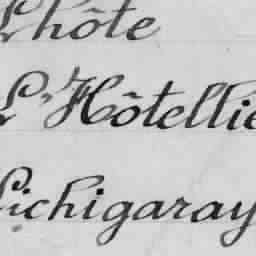 Lhôte
L'Hôtellie
Lichigaray